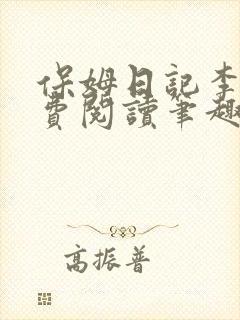 保姆日記李
費閱讀筆趣
高振普